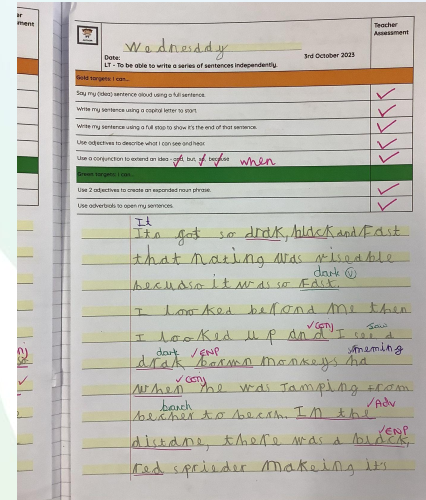 Teacher
Assessment
Wednesday
Date:
3rd October 2023
LT - To be able to write a series of sentences independently.
Gold targets: I can...
Say my (idea) sentence aloud using a full sentence.
Write my sentence using a capital letter to start.
Write my sentence using a full stop to show it's the end of that sentence.
Use adjectives to describe what I can see and hear.
Use a conjunction to extend an idea - and, but, so, because when
Green targets: I can...
Use 2 adjectives to create an expanded noun phrase.
Use adverbials to open my sentences.
It
Its got so drak, black and East
that nating was viseable
becuase it was so East.
dark
I loocked befond me then
I loocked up and I see a
conj saw
drak bormn monkeys ha
dark ENP meming
when he was Jamping from
conj
becher to bech. In the
banch Adv
distane, there was a black,
ENP
red sprieder makeing it's